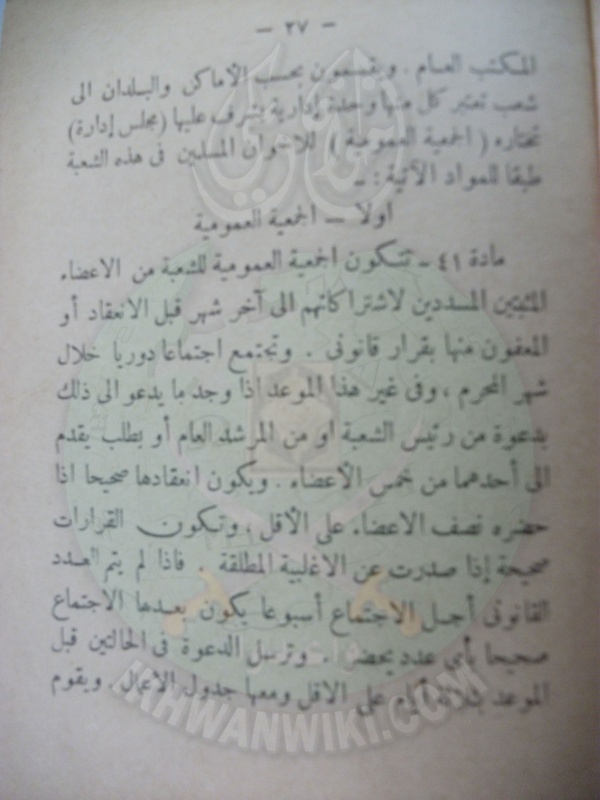 - ٢٧ -
المكتب العام . ويقسمون بحسب الأماكن والبلدان الى
شعب تعتبر كل منها وحدة إدارية يشرف عليها (مجلس إدارة)
تختاره ( الجمعية العمومية ) للاخوان المسلمين فى هذه الشعبة
طبقا للمواد الآتية : ــ
اولا — الجمعية العمومية
مادة ٤١ - تتكون الجمعية العمومية للشعبة من الاعضاء
المثبتين المسددين لاشتراكاتهم الى آخر شهر قبل الانعقاد أو
المعفون منها بقرار قانونى . وتجتمع اجتماعا دوريا خلال
شهر المحرم ، وفى غير هذا الموعد اذا وجد ما يدعو الى ذلك
بدعوة من رئيس الشعبة او من المرشد العام أو بطلب يقدم
الى أحدهما من خمس الأعضاء . ويكون انعقادها صحيحا اذا
حضره نصف الاعضاء على الأقل ، وتكون القرارات
صحيحة إذا صدرت عن الاغلبية المطلقة . فاذا لم يتم العدد
القانونى أجل الاجتماع أسبوعا يكون بعدها الاجتماع
صحيحا بأى عدد يحضر . وترسل الدعوة فى الحالتين قبل
الموعد بثلاثة أيام على الاقل ومعها جدول الاعمال . ويقوم
IKHWANWIKI.COM